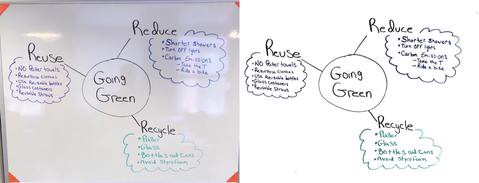 Reduce
• Shorter Showers
• Turn OFF lights
• Carbon Emissions
– Take the T
– Ride a bike
Reuse
• NO Paper towels
• Reusable bottles
• Glass containers
• Reusable Straws
Going
Green
Recycle
• Paper
• Glass
• Bottles and Cans
• Avoid Styrofoam
Reduce
• Shorter Showers
• Turn OFF lights
• Carbon Emissions
– Take the T
– Ride a bike
Reuse
• NO Paper towels
• Use Reusable bottles
• Glass containers
• Reusable Straws
Going
Green
Recycle
• Paper
• Glass
• Bottles and Cans
• Avoid Styrofoam